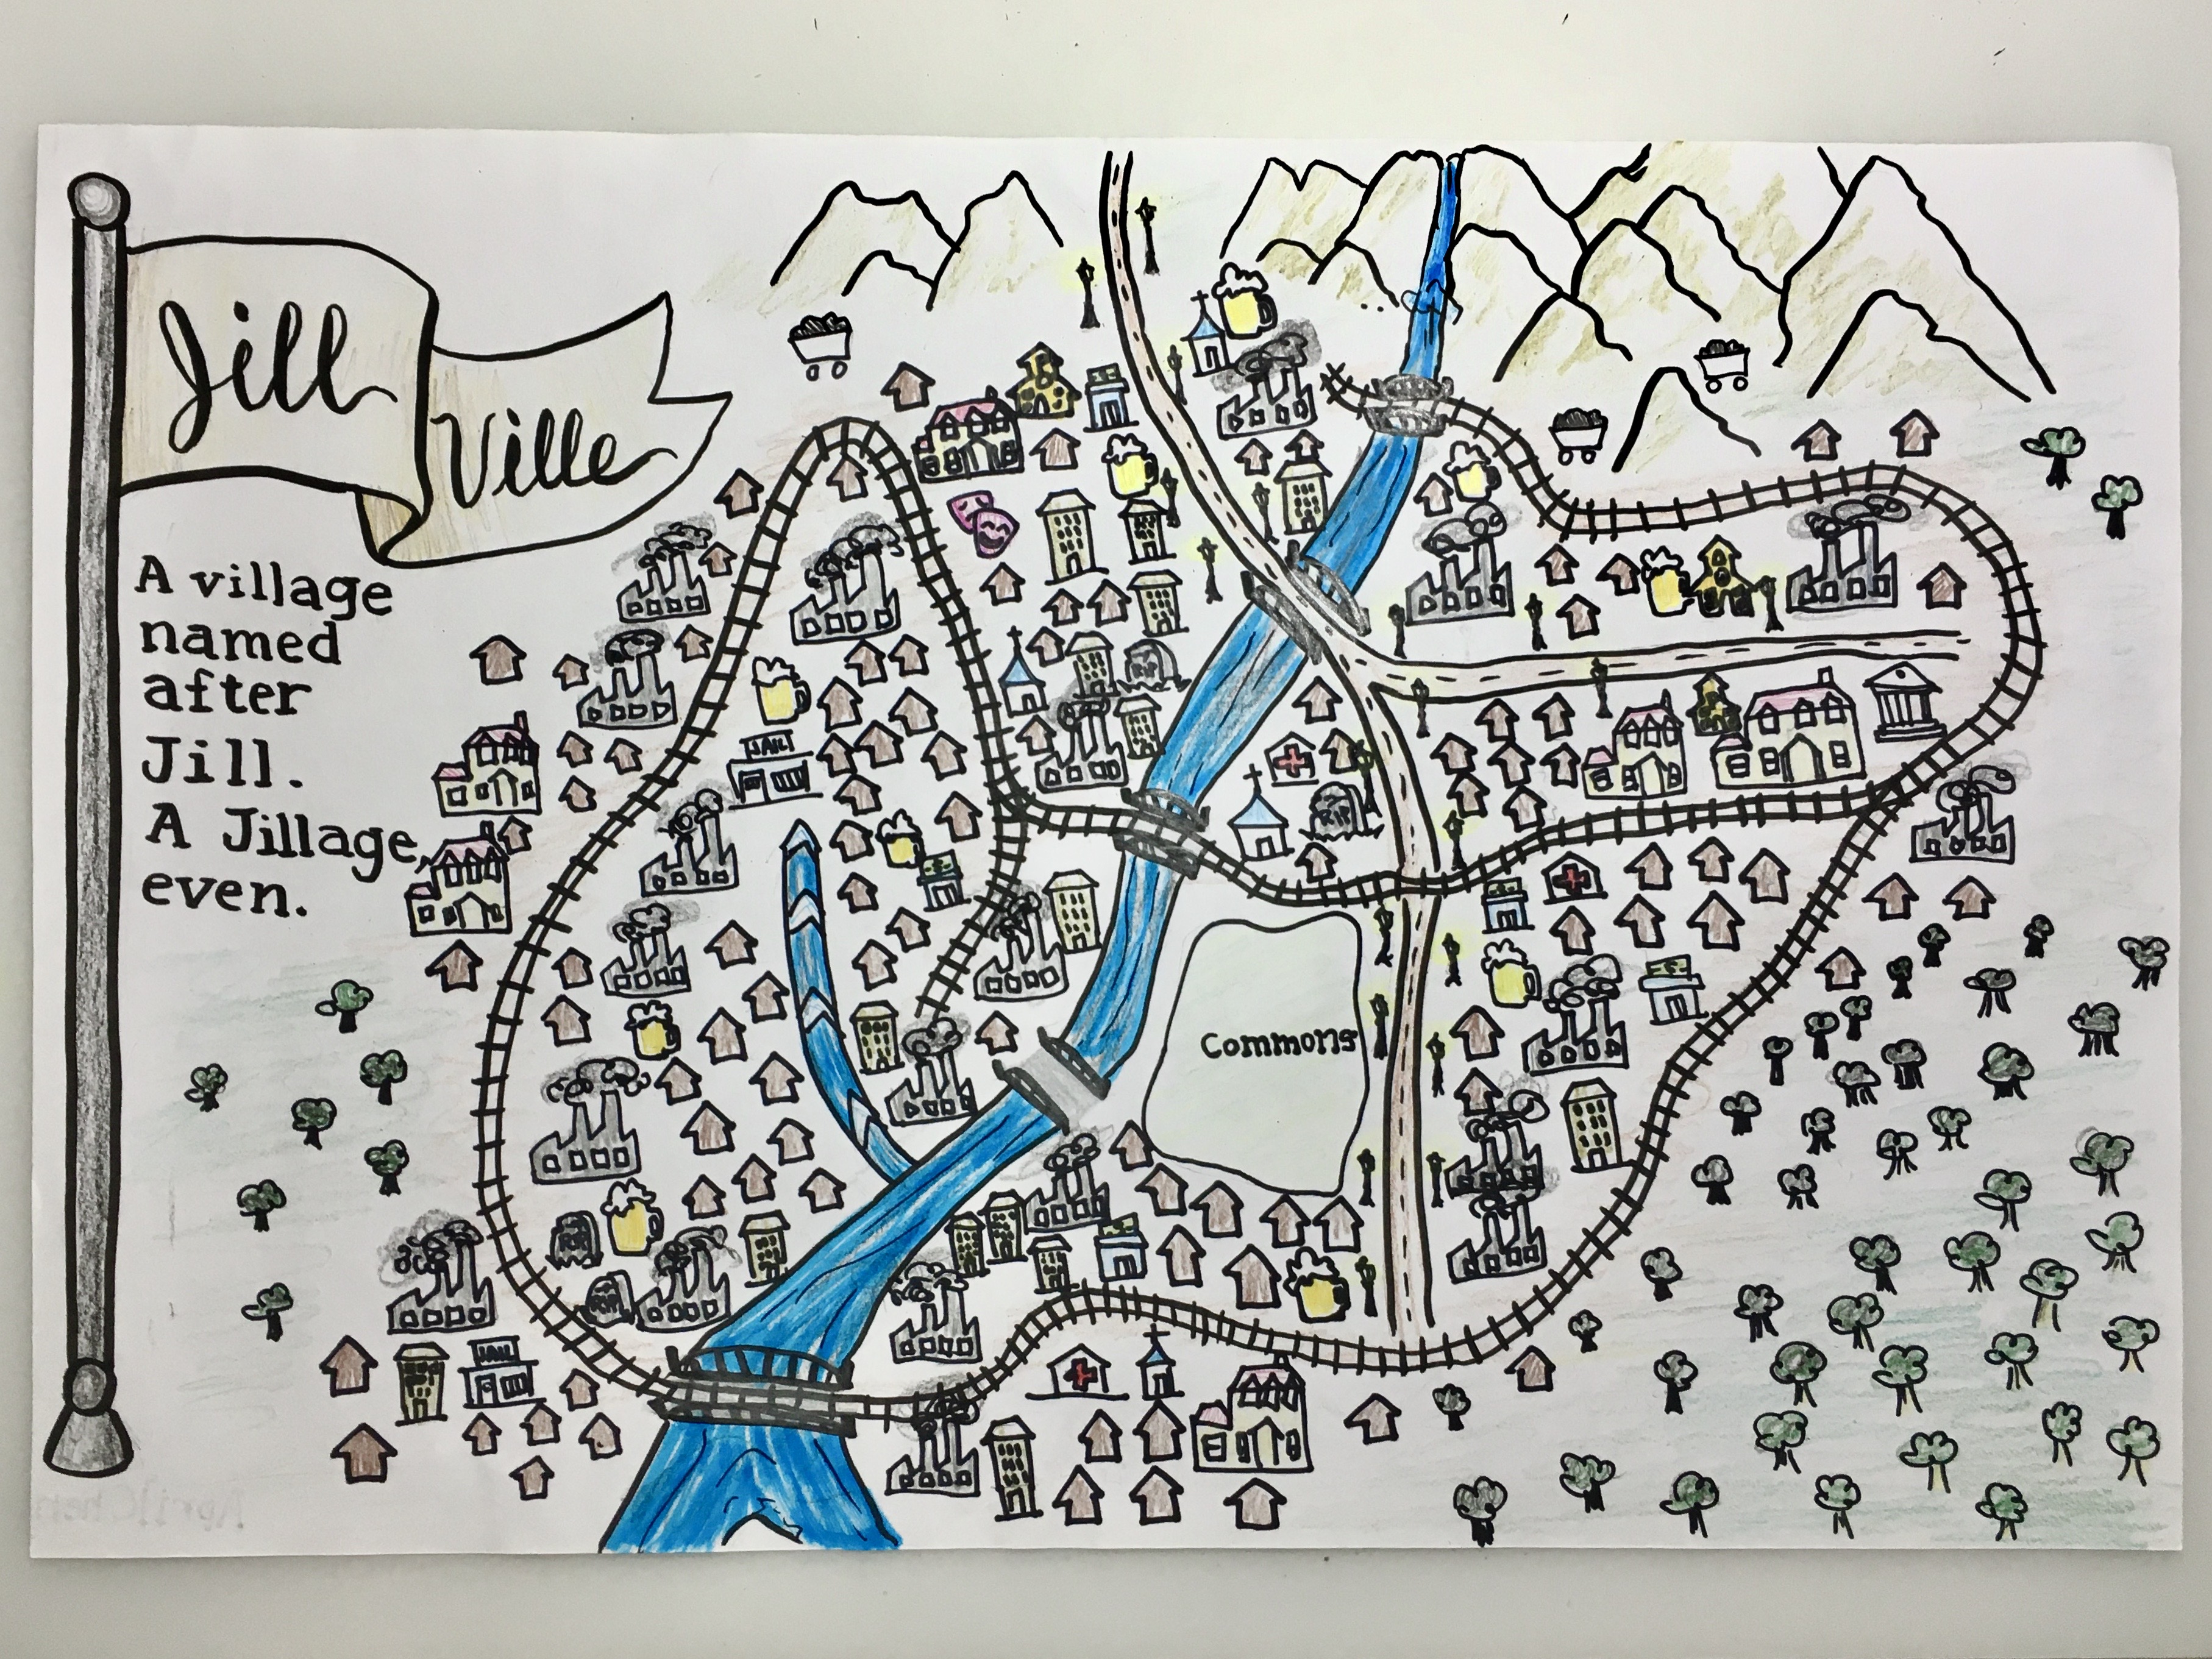 Jill
Ville
A village
named
after
Jill.
A Jillage,
even.
JAIL
RIP
RIP
Commons
RIP
JAIL